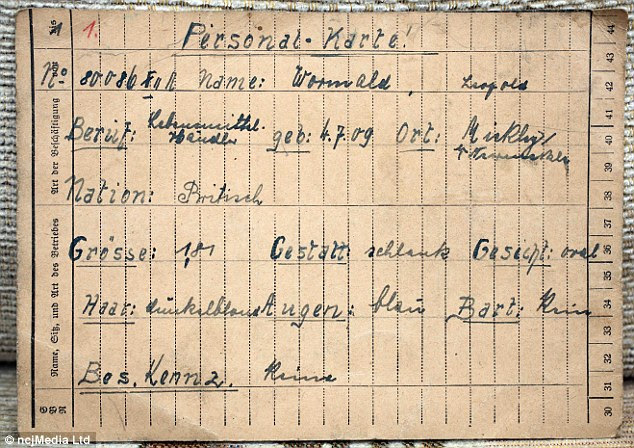 1. Personal-Karte!
No. 80086 Name: Wormald, Leopold
Beruf: Lebensmittl. geb: 4.7.09 Ort:
Händler
Nation: Britisch
Grösse: 1,81 Gestalt: schlank Gesicht: oval
Haar: dunkelblond Augen: blau Bart: Kein
Bes. Kennz. Keine
Name, Sitz, und Art des Betriebes
Art der Beschäftigung
44
43
42
41
40
39
38
37
36
35
34
33
32
31
30
© ncjMedia Ltd